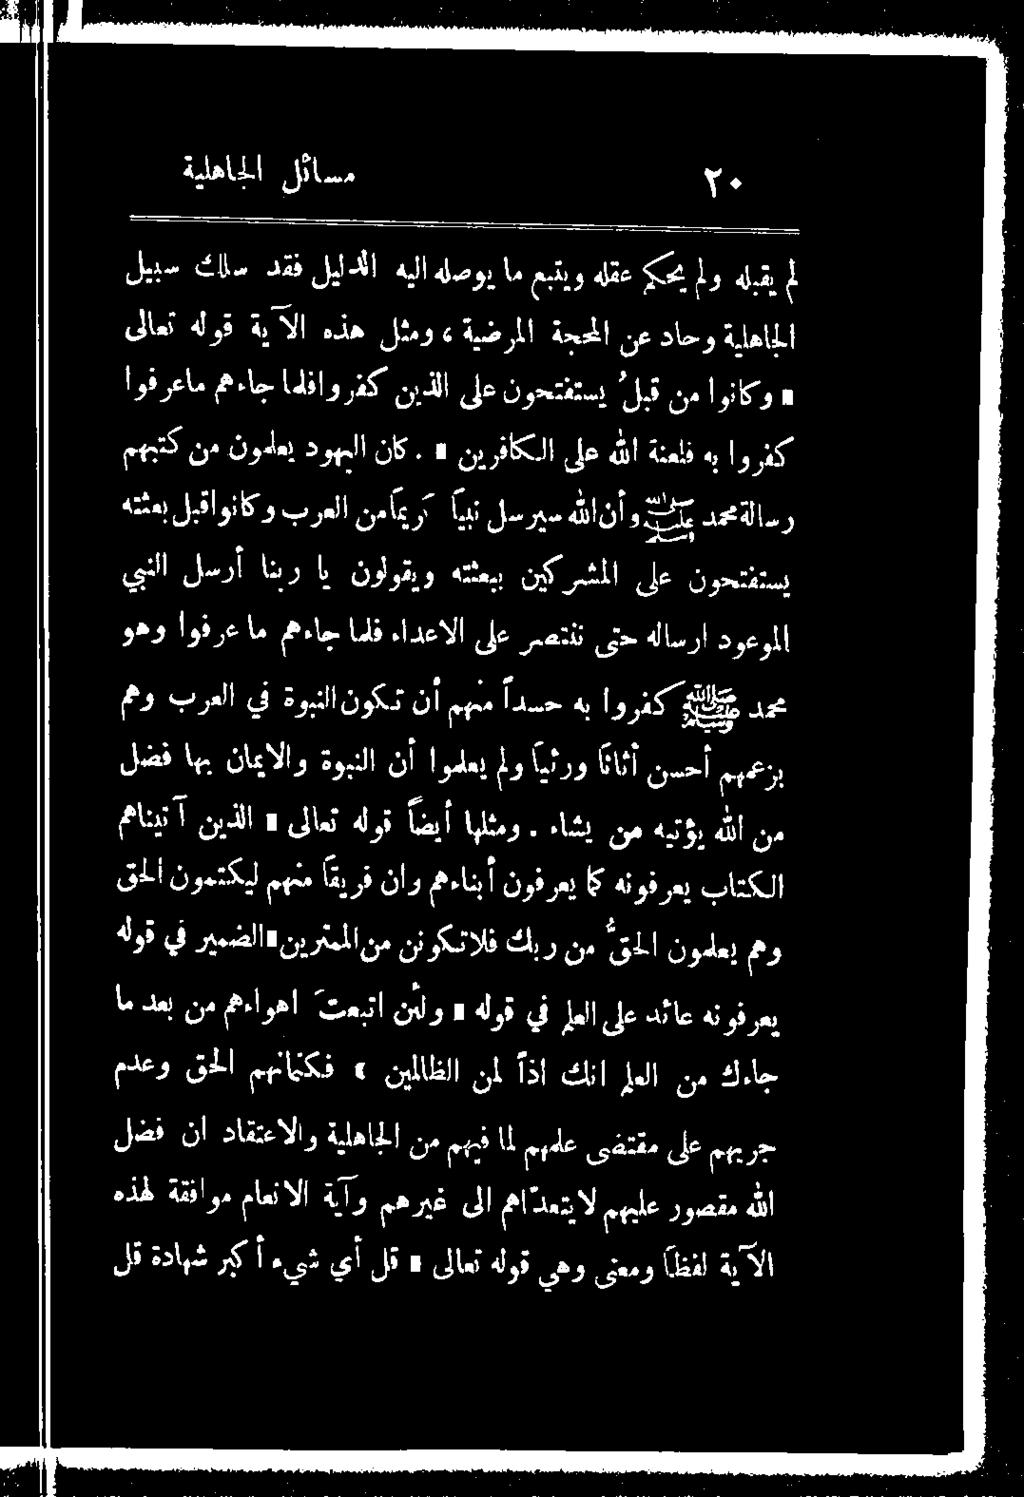 ٢٠ مسائل الجاهلية
لم يقبله ولم يحكم عقله ويتبع ما يوصله اليه الدليل فقد سلك سبيل
الجاهلية وحاد عن المحجة المرضية ، ومثل هذه الآية قوله تعالى
« وكانوا من قبلُ يستفتحون على الذين كفروا فلما جاءهم ماعرفوا
كفروا به فلعنة الله على الكافرين » . كان اليهود يعلمون من كتبهم
رسالة محمد ﷺ وأن الله سيرسل نبياً كريماً من العرب وكانوا قبل بعثته
يستفتحون على المشركين ببعثته ويقولون يا ربنا أرسل النبي
الموعود ارساله حتى ننتصر على الاعداء فلما جاءهم ما عرفوا وهو
محمد ﷺ كفروا به حسداً منهم أن تكون النبوة في العرب وهم
بزعمهم أحسن أثاثاً ورئياً ولم يعلموا أن النبوة والايمان بها فضل
من الله يؤتيه من يشاء . ومثلها أيضاً قوله تعالى « الذين آتيناهم
الكتاب يعرفونه كما يعرفون أبناءهم وان فريقاً منهم ليكتمون الحق
وهم يعلمون الحقُّ من ربك فلا تكونن من الممترين » الضمير في قوله
يعرفونه عائد على العلم في قوله « ولئن اتبعتَ اهواءهم من بعد ما
جاءك من العلم انك اذاً لمن الظالمين » فكتمانهم الحق وعدم
جريهم على مقتضى علمهم لما فيهم من الجاهلية والاعتقاد ان فضل
الله مقصور عليهم لا يتعدّاهم الى غيرهم وآية الانعام موافقة لهذه
الآية لفظاً ومعنى وهي قوله تعالى « قل أي شيء أكبر شهادة قل